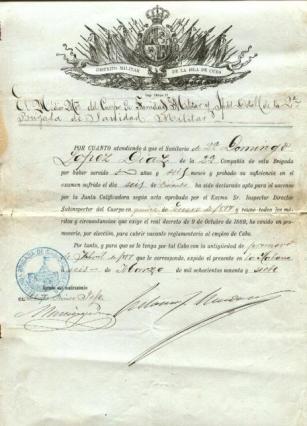 DISTRITO MILITAR DE LA ISLA DE CUBA
El Médico My. del Cuerpo de Sanidad Militar y Jefe del Detall de la 2ª
Brigada de Sanidad Militar
POR CUANTO atendiendo á que el Sanitario de 2ª Domingo
Lopez Diaz de la 2ª Compañía de esta Brigada
por haber servido años y seis meses y probado su suficiencia en el
examen sufrido el dia seis de ha sido declarado apto para el ascenso
por la Junta Calificadora según acta aprobada por el Excmo. Sr. Inspector Director
Subinspector del Cuerpo en de Enero de 1897 y reune todos los
y circunstancias que exige el real Decreto de 9 de Octubre de 1889, he venido en
promoverle, por elección, para cubrir vacante reglamentaria al empleo de Cabo.
Por tanto, y para que se le tenga por tal Cabo con la antigüedad de primero
de de 1897 que le corresponde, expido el presente en La Habana
á seis de Marzo de mil ochocientos noventa y siete